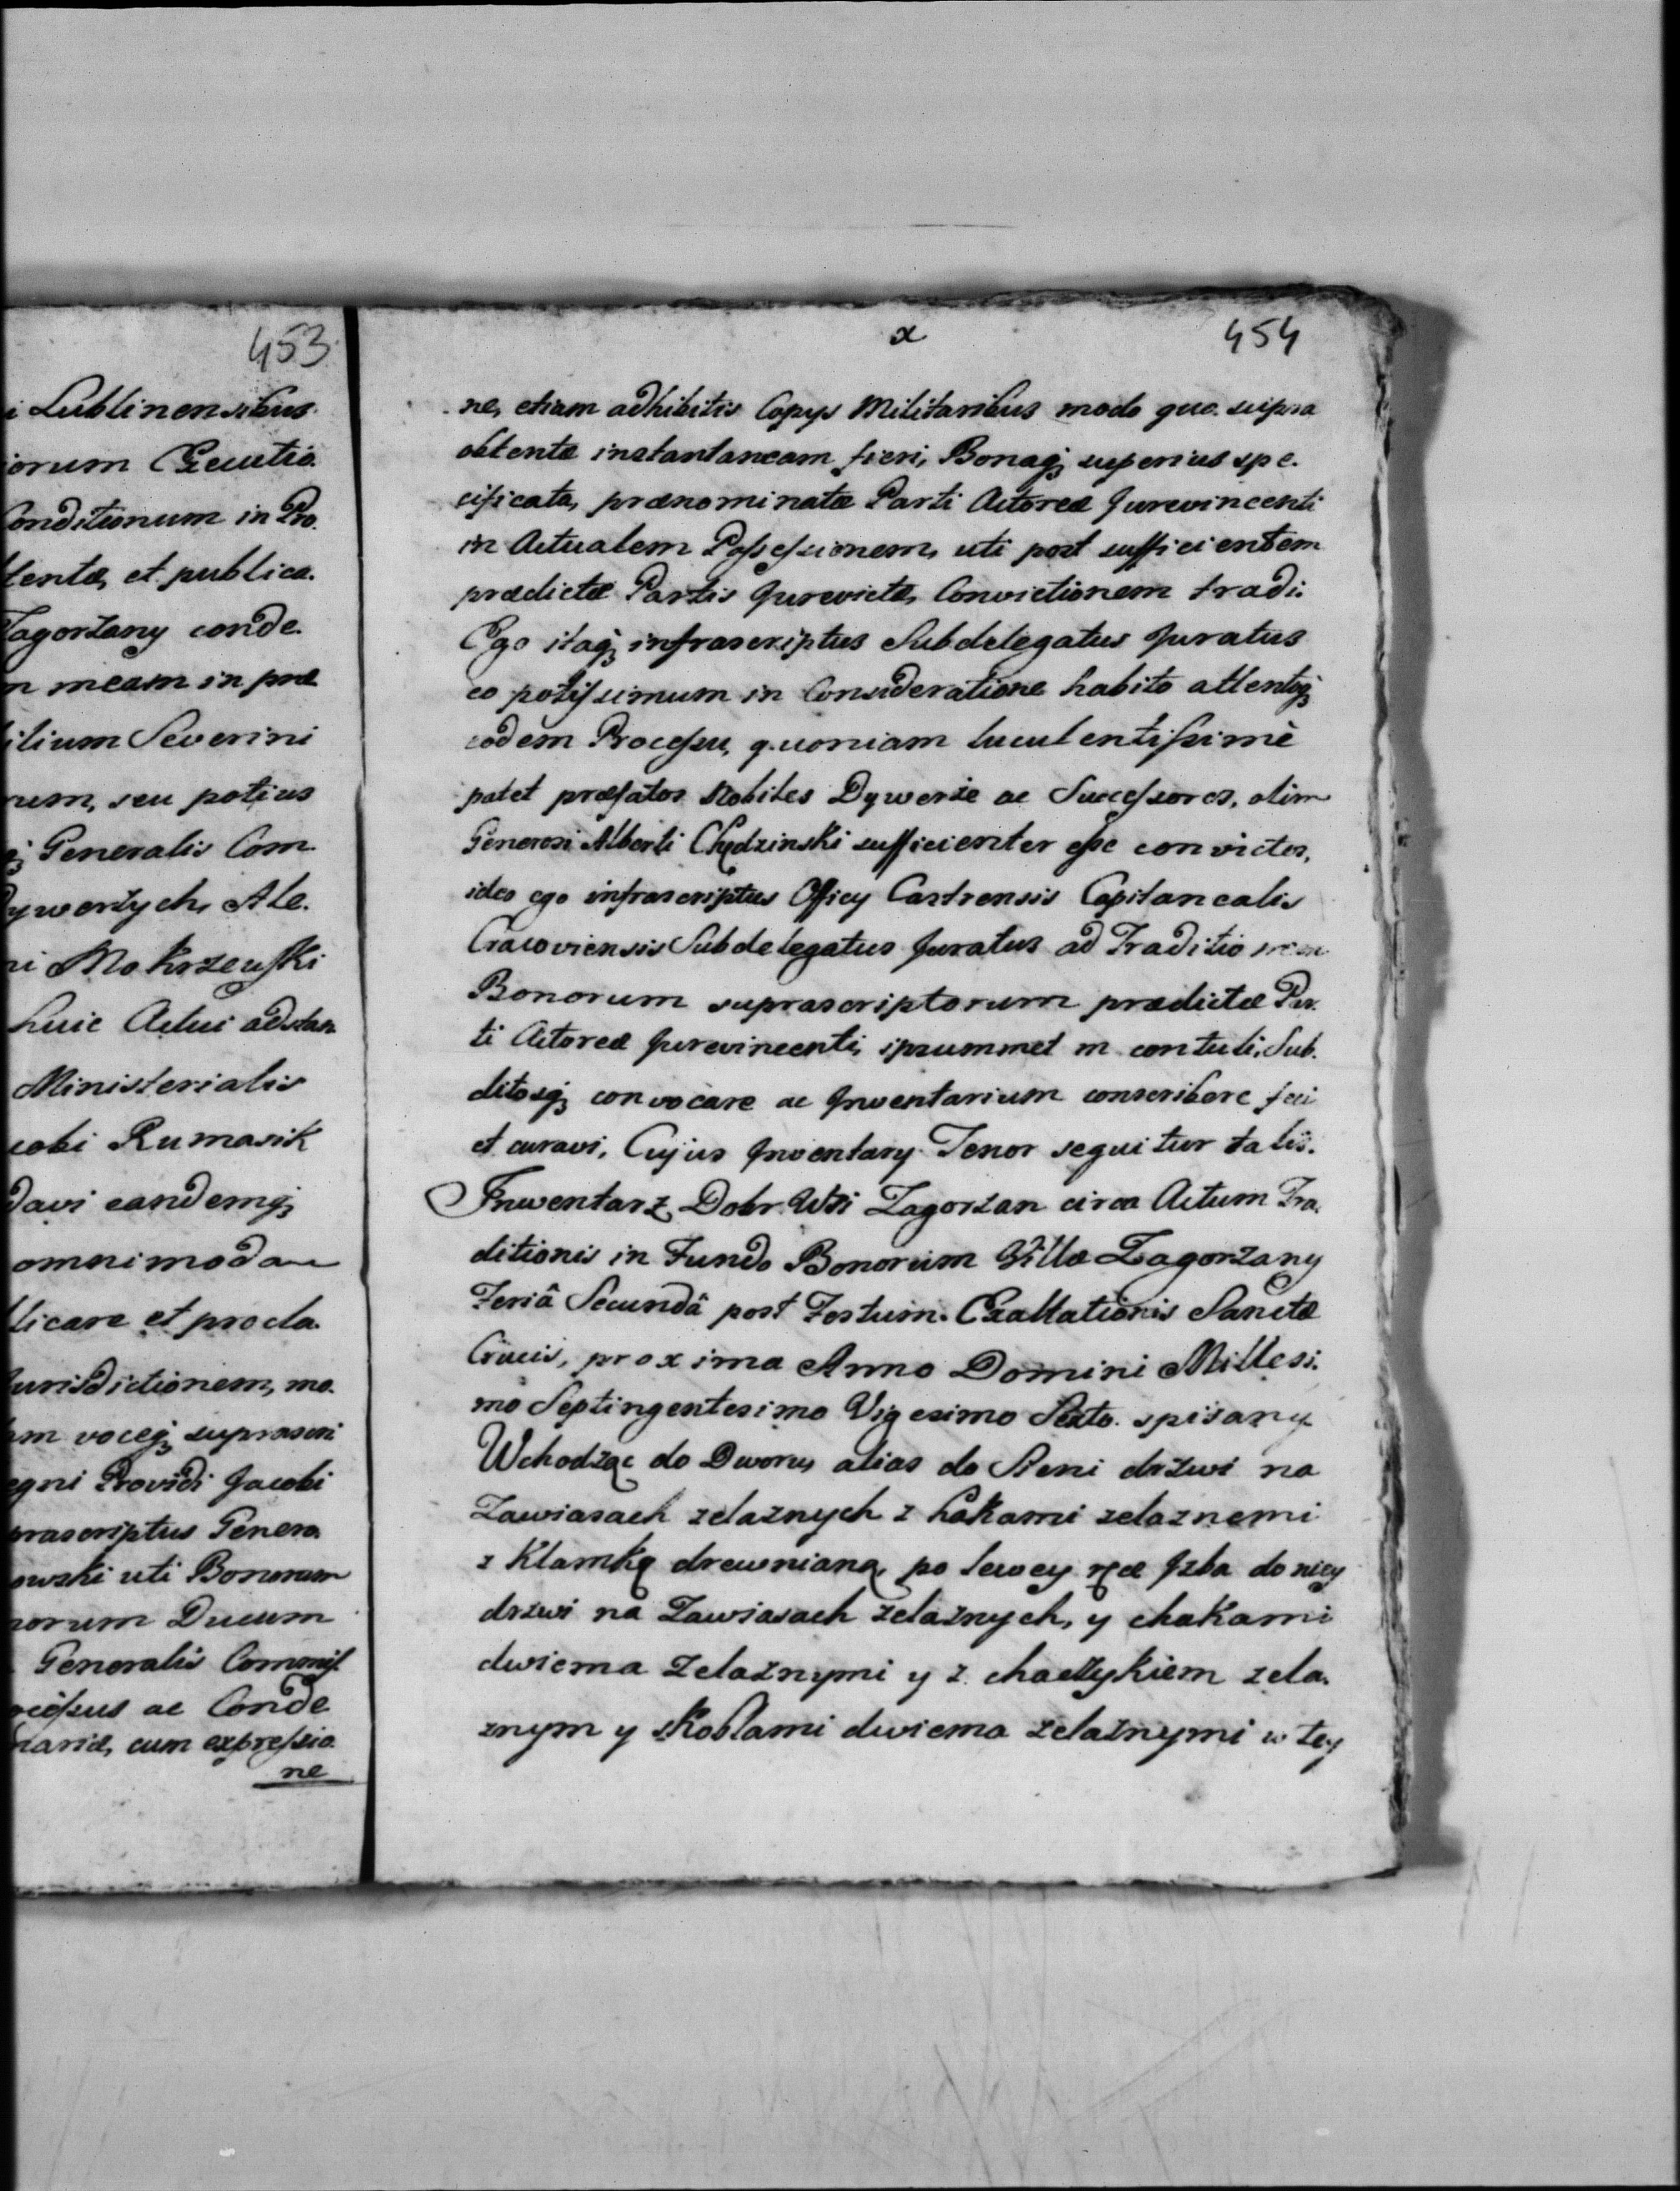 453
i Lublinensibus
iorum Executio
Conditionum in Pro.
tentæ, et publica.
Zagorzany conde.
m meam in præ
ilium Severini
rum, seu potius
Generalis Com
Dywertych, Ale.
ni Mokrzewski
huic Actui adstan
Ministerialis
cobi Rumasik
davi eandemq;
omnimodam
licare et procla.
Jurisdictionem, mo.
am voceq; suprascri
egni Providi Jacobi
prascriptus Genera
owski uti Bonorum
norum Ducum
Generalis Commiss.
ocessus ac Conde
nariæ, cum expressio.
ne
x 454
ne, etiam adhibitis Copys Militaribus modo quo supra
obtenta instantaneam fieri, Bonaq; superius spe.
cificata, prænominatæ Parti Actoreæ Jurevincenti
in Actualem Possessionem, uti post sufficientem
prædictæ Partis Jurevictæ, Convictionem tradi:
Ego itaq; infrascriptus Subdelegatus Juratus
eo potissimum in Consideratione habito attentoq;
eodem Processu, quoniam luculentissimè
patet præfatos Nobiles Dywerże ac Successores, olim
Generosi Alberti Chądzinski sufficienter esse convictos,
ideo ego infrascriptus Officy Castrensis Capitanealis
Cracoviensis Subdelegatus Juratus ad Traditionem
Bonorum suprascriptorum prædictæ Par.
ti Actoreæ Jurevincenti, ipsummet m contuli, Sub.
ditosq; convocare ac Inventarium conscribere feci
et curavi, Cujus Inventary Tenor sequitur talis.
Inwentarz Dobr Wsi Zagorzan circa Actum Tra.
ditionis in Fundo Bonorum Villæ Zagorzany
Feriâ Secundâ post Festum Exaltationis Sanctæ
Crucis, proxima Anno Domini Millesi.
mo Septingentesimo Vigesimo Sexto spisany
Wchodząc do Dworu, alias do Sieni drzwi na
Zawiasach zelaznych z hakami zelaznemi
z Klamką drewnianą, po lewey ręce Izba do niey
drzwi na Zawiasach zelaznych, y chakami
dwiema zelaznymi y z chaczykiem zela.
znym y skoblami dwiema zelaznymi w tey